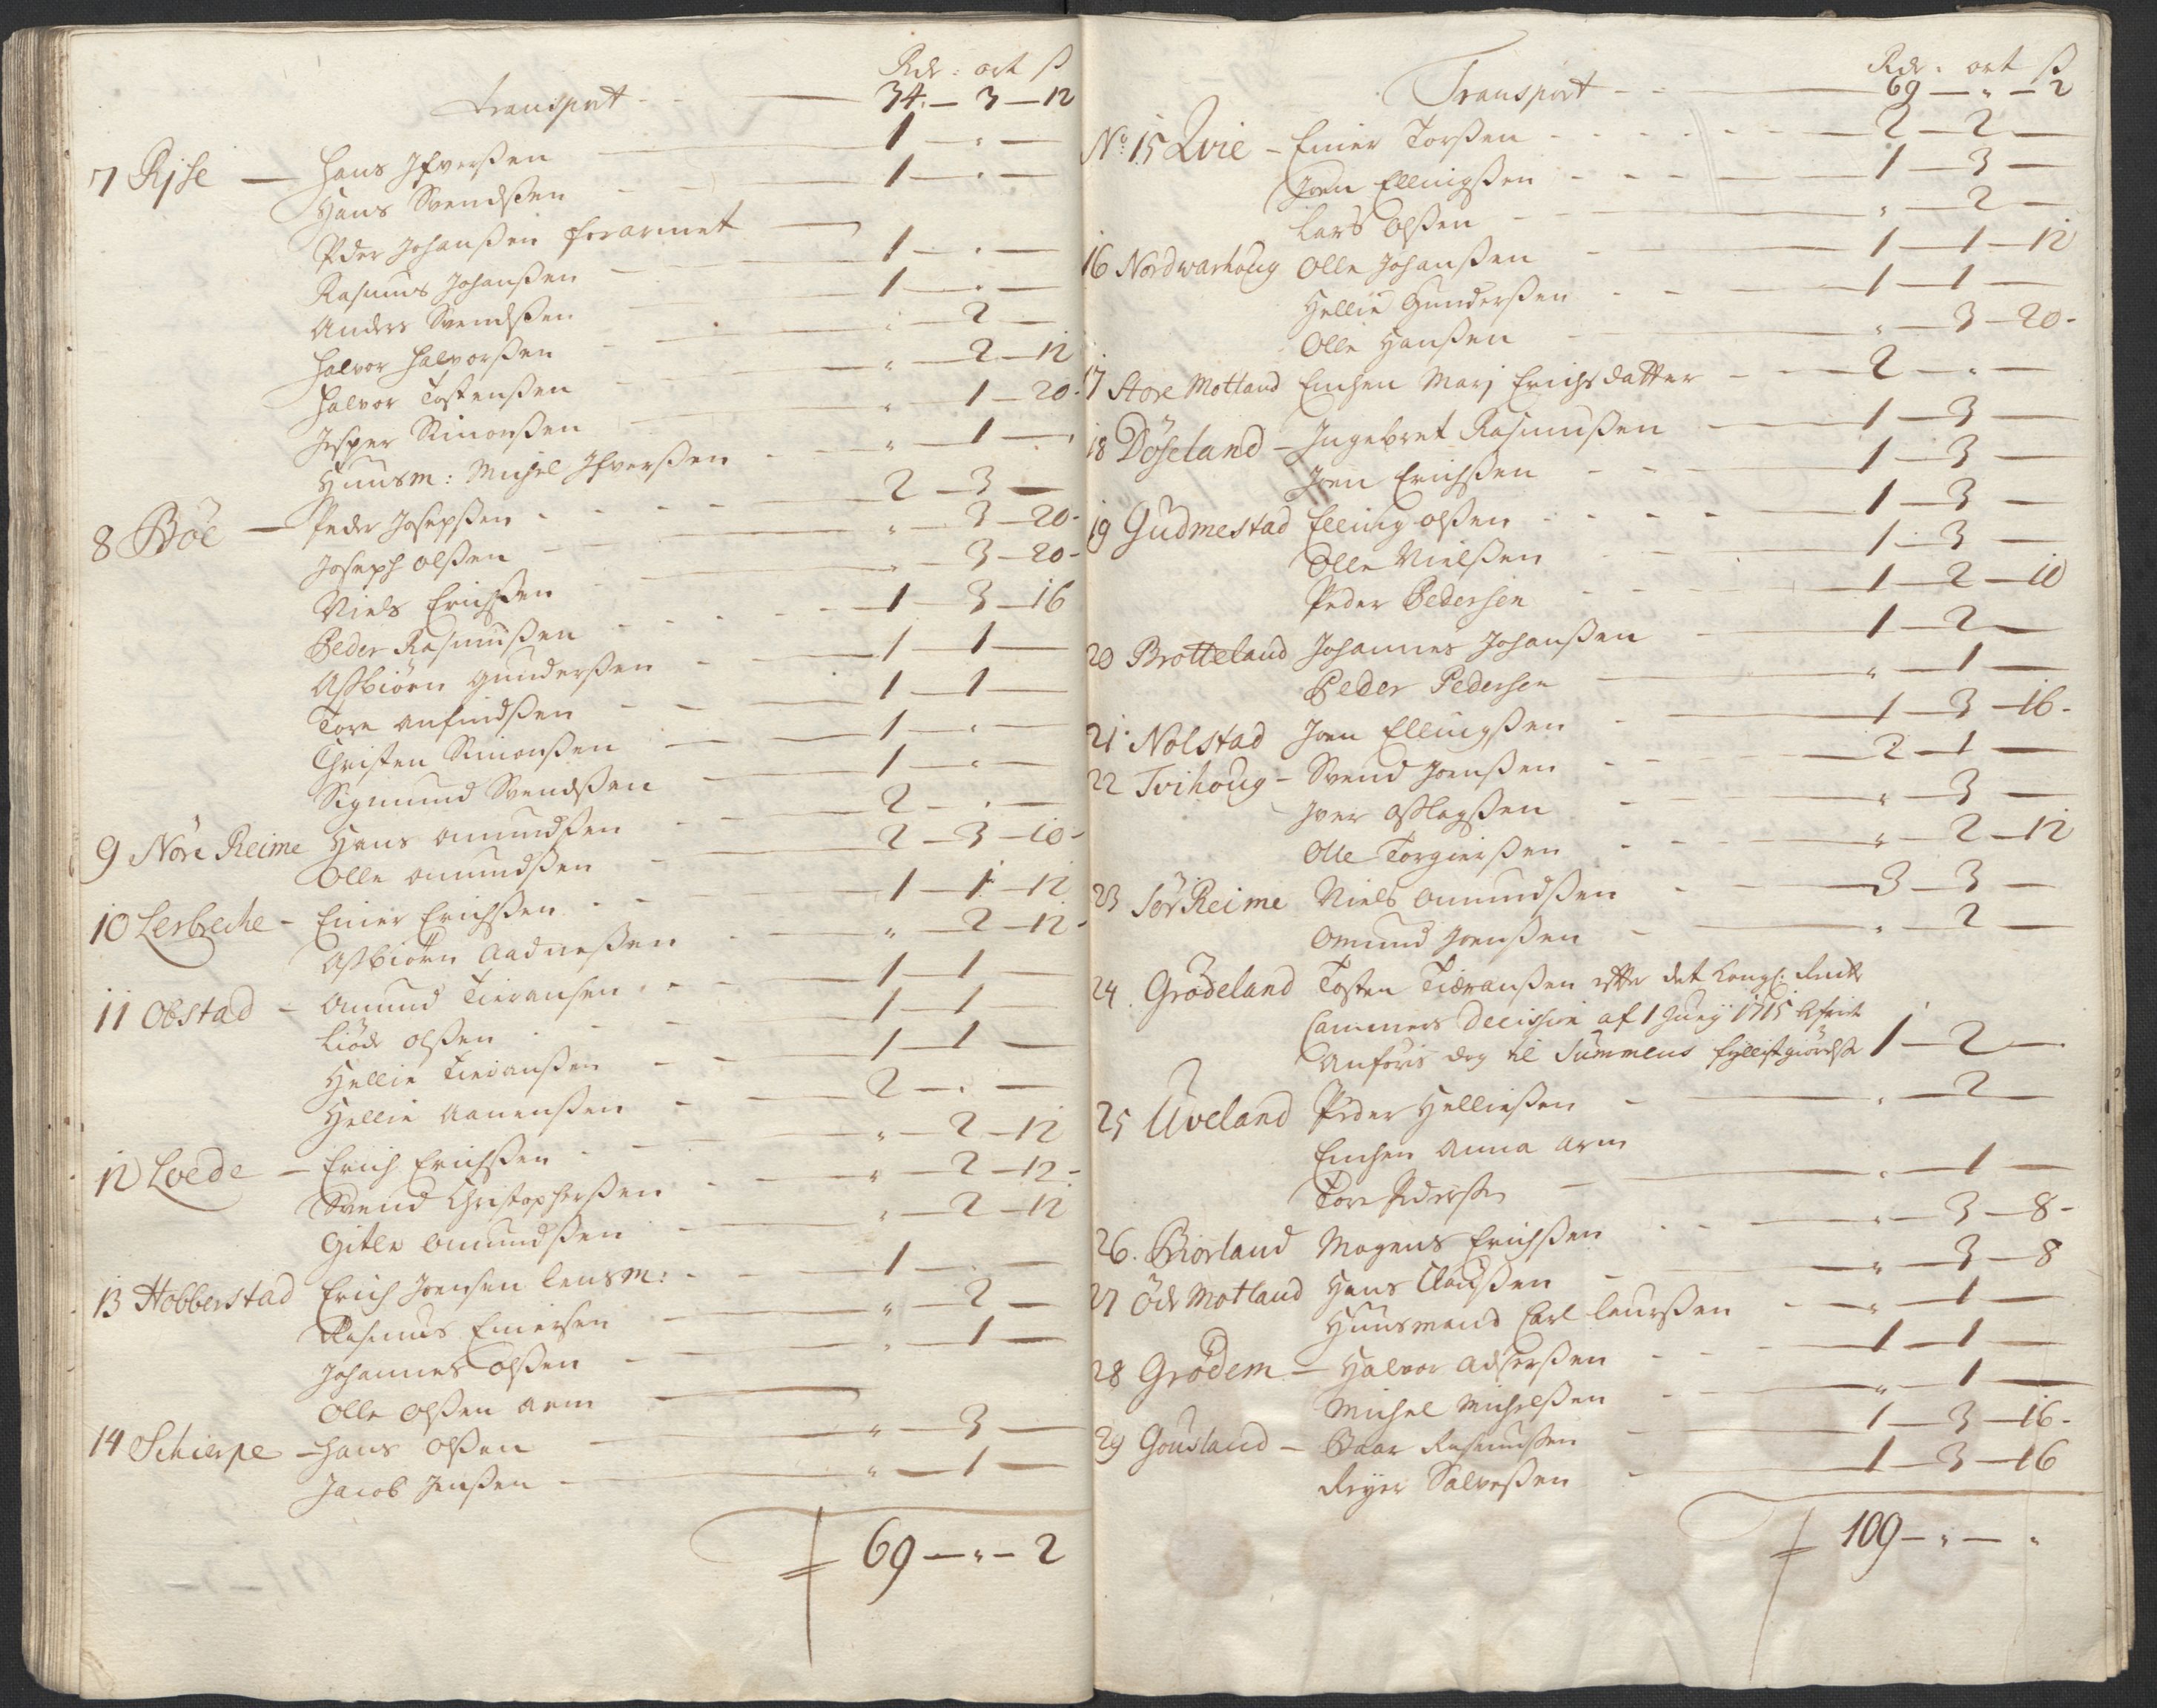 Rdr: ort ß
Transport 34 - 3 - 12
7 Rise - Hans Ifversen 1 - " -
Hans Svendsen 1 - " -
Peder Johansen forarmet
Rasmus Johansen 1 - " -
Anders Svendsen 1 - " -
Halvor Halvorsen " - 2 -
Halvor Tostensen " - 2 - 12
Jesper Simonsen " - 1 - 20
Huusm: Michel Ifversen " - 1 -
8 Böe - Peder Josepsen 2 - 3 -
Joseph Olsen " - 3 - 20
Niels Erichsen " - 3 - 20
Peder Rasmusen 1 - 3 - 16
Asbiörn Gundersen 1 - 1 -
Tore Anfindsen 1 - 1 -
Christen Simonsen 1 - " -
Sigmund Svendsen 1 - " -
9 Nöre Reime Hans Omundsen 2 - " -
Olle Omundsen 2 - 3 - 10
10 Lerbreche - Einer Erichsen 1 - 1 - 12
Asbiörn Aadnesen " - 2 - 12
11 Obstad - Omund Tieransen 1 - 1 -
Liöde Olsen 1 - 1 -
Hellie Tieransen 1 - 1 -
Hellie Aanensen 2 - " -
12 Loede - Erich Erichsen " - 2 - 12
Svend Christophersen " - 2 - 12
Gitle Omundsen " - 2 - 12
13 Hobberstad Erich Joensen lensm: 1 - " -
Rasmus Einersen " - 2 -
Johannes Olsen " - 1 -
Olle Olsen arm
14 Schierpe - Hans Olsen " - 3 -
Jacob Jensen " - 1 -
69 - " - 2
Rdr: ort ß
Transport 69 - " - 2
No 15 Qvie - Einer Torsen 2 - 2 -
Joen Ellingsen 1 - 3 -
Lars Olsen " - 2 -
16 Nordwarhoug Olle Johansen 1 - 1 - 12
Hellie Gundersen 1 - 1 -
Olle Hansen " - 3 - 20
17 Store Motland Enchen Mari Erichsdatter 2 - " -
18 Döseland - Ingebret Rasmusen 1 - 3 -
Joen Erichsen 1 - 3 -
19 Gudmestad Elling Olsen 1 - 3 -
Olle Nielsen 1 - 3 -
Peder Pedersen 1 - 2 - 10
20 Brotteland Johannes Johansen 1 - 2 -
Peder Pedersen " - 1 -
21 Nolstad Joen Ellingsen 1 - 3 - 16
22 Tvihoug - Svend Joensen 2 - 1 -
Iver Aslagsen " - 3 -
Olle Torgiersen " - 2 - 12
23 Sör Reime Niels Omundsen 3 - 3 -
Omund Joensen " - 2 -
24 Grödeland Tosten Tiæransen efter det Kongl: Rente
Cammers Decision af 1 Junij 1715
Anföris dog til Summens fyllistgiörelse 1 - 2 -
25 Uveland Peder Helliesen " - 2 -
Enchen Anna arm
Tore Pedersen " - 1 -
26. Biorland Mogens Erichsen " - 3 - 8
27 Öde Motland Hans Clausen " - 3 - 8
Huusmand Carl Laursen " - 1 -
28 Grödem - Halvor Adsersen 1 - 1 -
Michel Michelsen " - 1 -
29 Gousland - Baar Rasmusen 1 - 3 - 16
Reyer Salvesen 1 - 3 - 16
109 - " - "